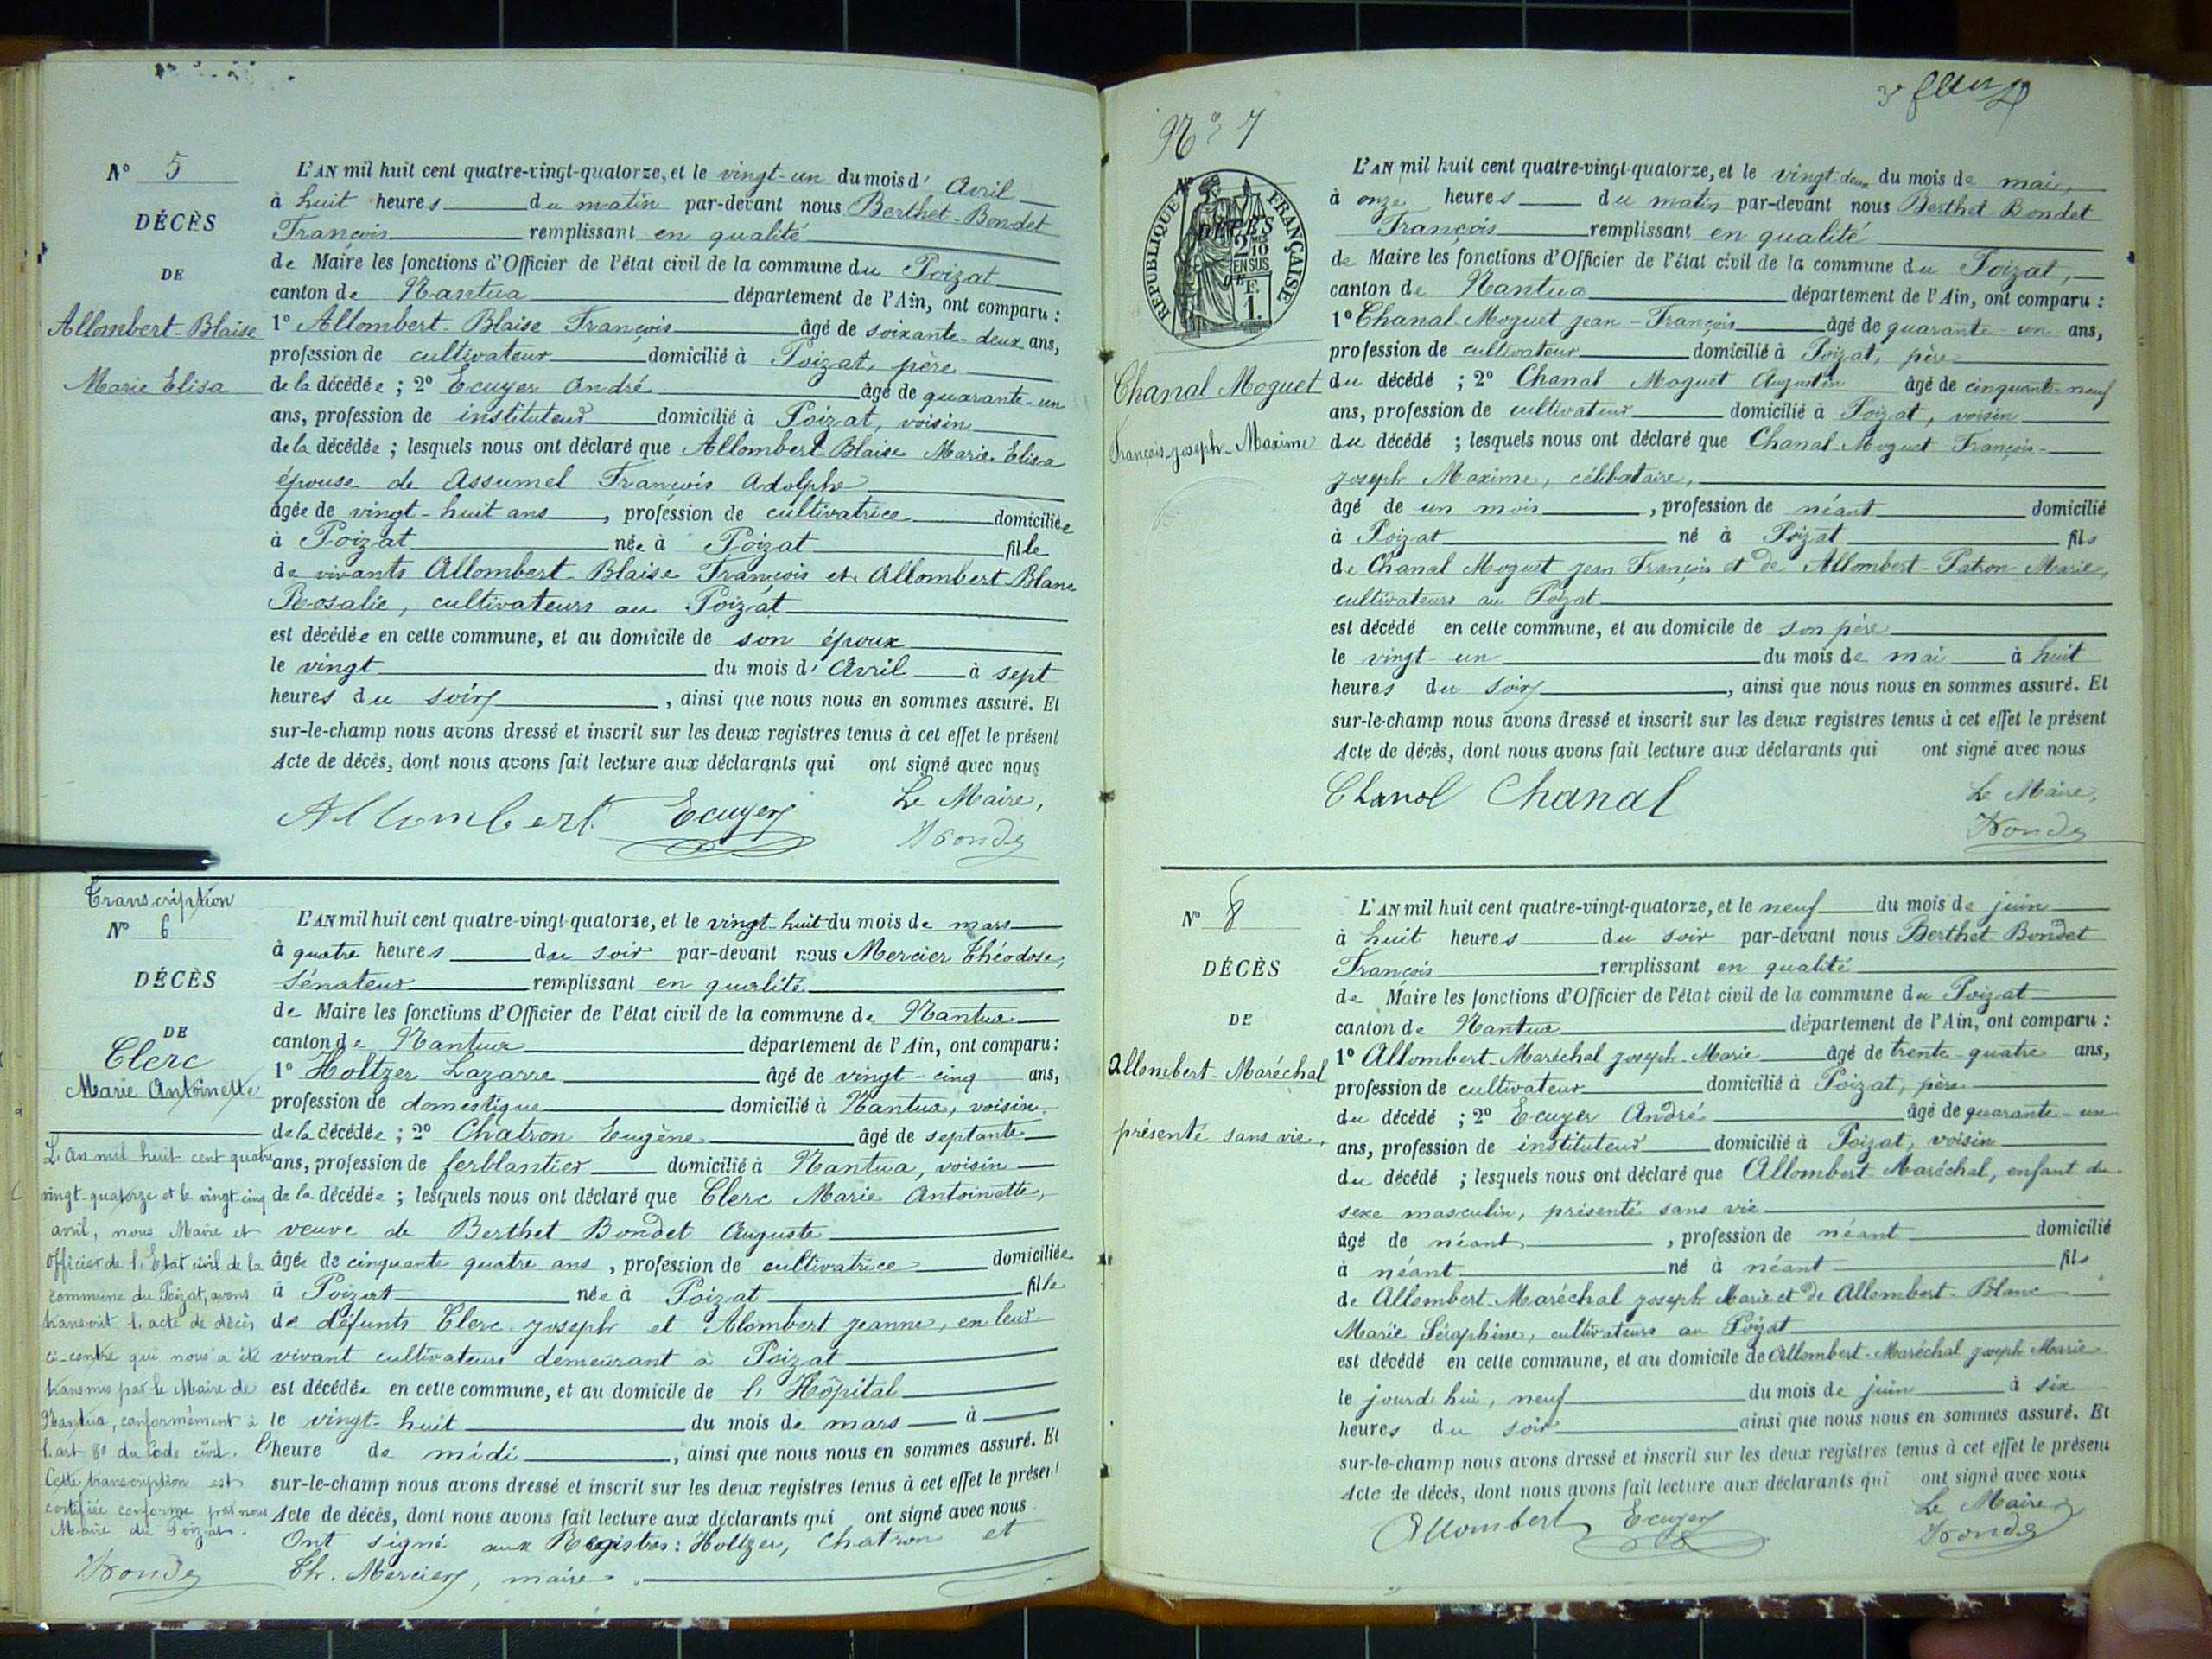 N° 5
DÉCÈS
DE
Allombert-Blaise
Marie Elisa
L'AN mil huit cent quatre-vingt-quatorze, et le vingt-un du mois d' Avril
à huit heures du matin par-devant nous Berthet-Bondet
François remplissant en qualité
de Maire les fonctions d'Officier de l'état civil de la commune du Poizat
canton de Nantua département de l'Ain, ont comparu :
1° Allombert-Blaise François âgé de soixante-deux ans,
profession de cultivateur domicilié à Poizat, père
de la décédée ; 2° Ecuyer André âgé de quarante-un
ans, profession de instituteur domicilié à Poizat, voisin
de la décédée ; lesquels nous ont déclaré que Allombert Blaise Marie Elisa
épouse de Assumel François Adolphe
âgée de vingt-huit ans, profession de cultivatrice domiciliée
à Poizat née à Poizat fille
de vivants Allombert-Blaise François et Allombert-Blanc
Rosalie, cultivateurs au Poizat
est décédée en cette commune, et au domicile de son époux
le vingt du mois d'Avril à sept
heures du soir, ainsi que nous nous en sommes assuré. Et
sur-le-champ nous avons dressé et inscrit sur les deux registres tenus à cet effet le présent
Acte de décès, dont nous avons fait lecture aux déclarants qui ont signé avec nous
Le Maire,
Allombert Ecuyer
Transcription
N° 6
DÉCÈS
DE
Clerc
Marie Antoinette
L'an mil huit cent quatre
vingt-quatorze et le vingt cinq
avril, nous Maire et
officier de l'Etat civil de la
commune du Poizat, avons
transcrit l'acte de décès
ci-contre qui nous a été
transmis par le Maire de
Nantua, conformément à
l'art 80 du Code civil.
Cette transcription est
certifiée conforme par nous
Maire du Poizat.
L'AN mil huit cent quatre-vingt-quatorze, et le vingt-huit du mois de mars
à quatre heures du soir par-devant nous Mercier Théodose,
Sénateur remplissant en qualité
de Maire les fonctions d'Officier de l'état civil de la commune de Nantua
canton de Nantua département de l'Ain, ont comparu :
1° Holtzer Lazarre âgé de vingt-cinq ans,
profession de domestique domicilié à Nantua, voisin
de la décédée ; 2° Chatron Eugène âgé de septante
ans, profession de ferblantier domicilié à Nantua, voisin
de la décédée ; lesquels nous ont déclaré que Clerc Marie Antoinette,
veuve de Berthet Bondet Auguste
âgée de cinquante quatre ans, profession de cultivatrice domiciliée
à Poizat née à Poizat fille
de défunts Clerc Joseph et Alombert Jeanne, en leur
vivant cultivateurs demeurant à Poizat
est décédée en cette commune, et au domicile de l'Hôpital
le vingt-huit du mois de mars à
l'heure de midi, ainsi que nous nous en sommes assuré. Et
sur-le-champ nous avons dressé et inscrit sur les deux registres tenus à cet effet le présent
Acte de décès, dont nous avons fait lecture aux déclarants qui ont signé avec nous
Ont signé aux Registres : Holtzer, Chatron et
Th. Mercier, maire.
N° 7
RÉPUBLIQUE FRANÇAISE
N°
DÉCÈS
2/10
EN SUS
DE
F.
1.
Chanal Moguet
François-Joseph-Maxime
L'AN mil huit cent quatre-vingt-quatorze, et le vingt-deux du mois de mai,
à onze heures du matin par-devant nous Berthet Bondet
François remplissant en qualité
de Maire les fonctions d'Officier de l'état civil de la commune du Poizat,
canton de Nantua département de l'Ain, ont comparu :
1° Chanal Moguet Jean-François âgé de quarante-un ans,
profession de cultivateur domicilié à Poizat, père
du décédé ; 2° Chanal Moguet Augustin âgé de cinquante-neuf
ans, profession de cultivateur domicilié à Poizat, voisin
du décédé ; lesquels nous ont déclaré que Chanal-Moguet François-
Joseph Maxime, célibataire,
âgé de un mois, profession de néant domicilié
à Poizat né à Poizat fils
de Chanal Moguet Jean François et de Allombert-Patron Marie,
cultivateurs au Poizat
est décédé en cette commune, et au domicile de son père
le vingt-un du mois de mai à huit
heures du soir, ainsi que nous nous en sommes assuré. Et
sur-le-champ nous avons dressé et inscrit sur les deux registres tenus à cet effet le présent
Acte de décès, dont nous avons fait lecture aux déclarants qui ont signé avec nous
Chanal Chanal Le Maire,
N° 8
DÉCÈS
DE
Allombert-Maréchal
présenté sans vie.
L'AN mil huit cent quatre-vingt-quatorze, et le neuf du mois de juin
à huit heures du soir par-devant nous Berthet Bondet
François remplissant en qualité
de Maire les fonctions d'Officier de l'état civil de la commune du Poizat
canton de Nantua département de l'Ain, ont comparu :
1° Allombert-Maréchal Joseph-Marie âgé de trente-quatre ans,
profession de cultivateur domicilié à Poizat, père
du décédé ; 2° Ecuyer André âgé de quarante-un
ans, profession de instituteur domicilié à Poizat, voisin
du décédé ; lesquels nous ont déclaré que Allombert-Maréchal, enfant du
sexe masculin, présenté sans vie
âgé de néant, profession de néant domicilié
à néant né à néant fils
de Allombert-Maréchal Joseph Marie et de Allombert-Blanc
Marie Séraphine, cultivateurs au Poizat
est décédé en cette commune, et au domicile de Allombert-Maréchal Joseph Marie
le jourd'hui, neuf du mois de juin à six
heures du soir ainsi que nous nous en sommes assuré. Et
sur-le-champ nous avons dressé et inscrit sur les deux registres tenus à cet effet le présent
Acte de décès, dont nous avons fait lecture aux déclarants qui ont signé avec nous
Le Maire
Allombert Ecuyer